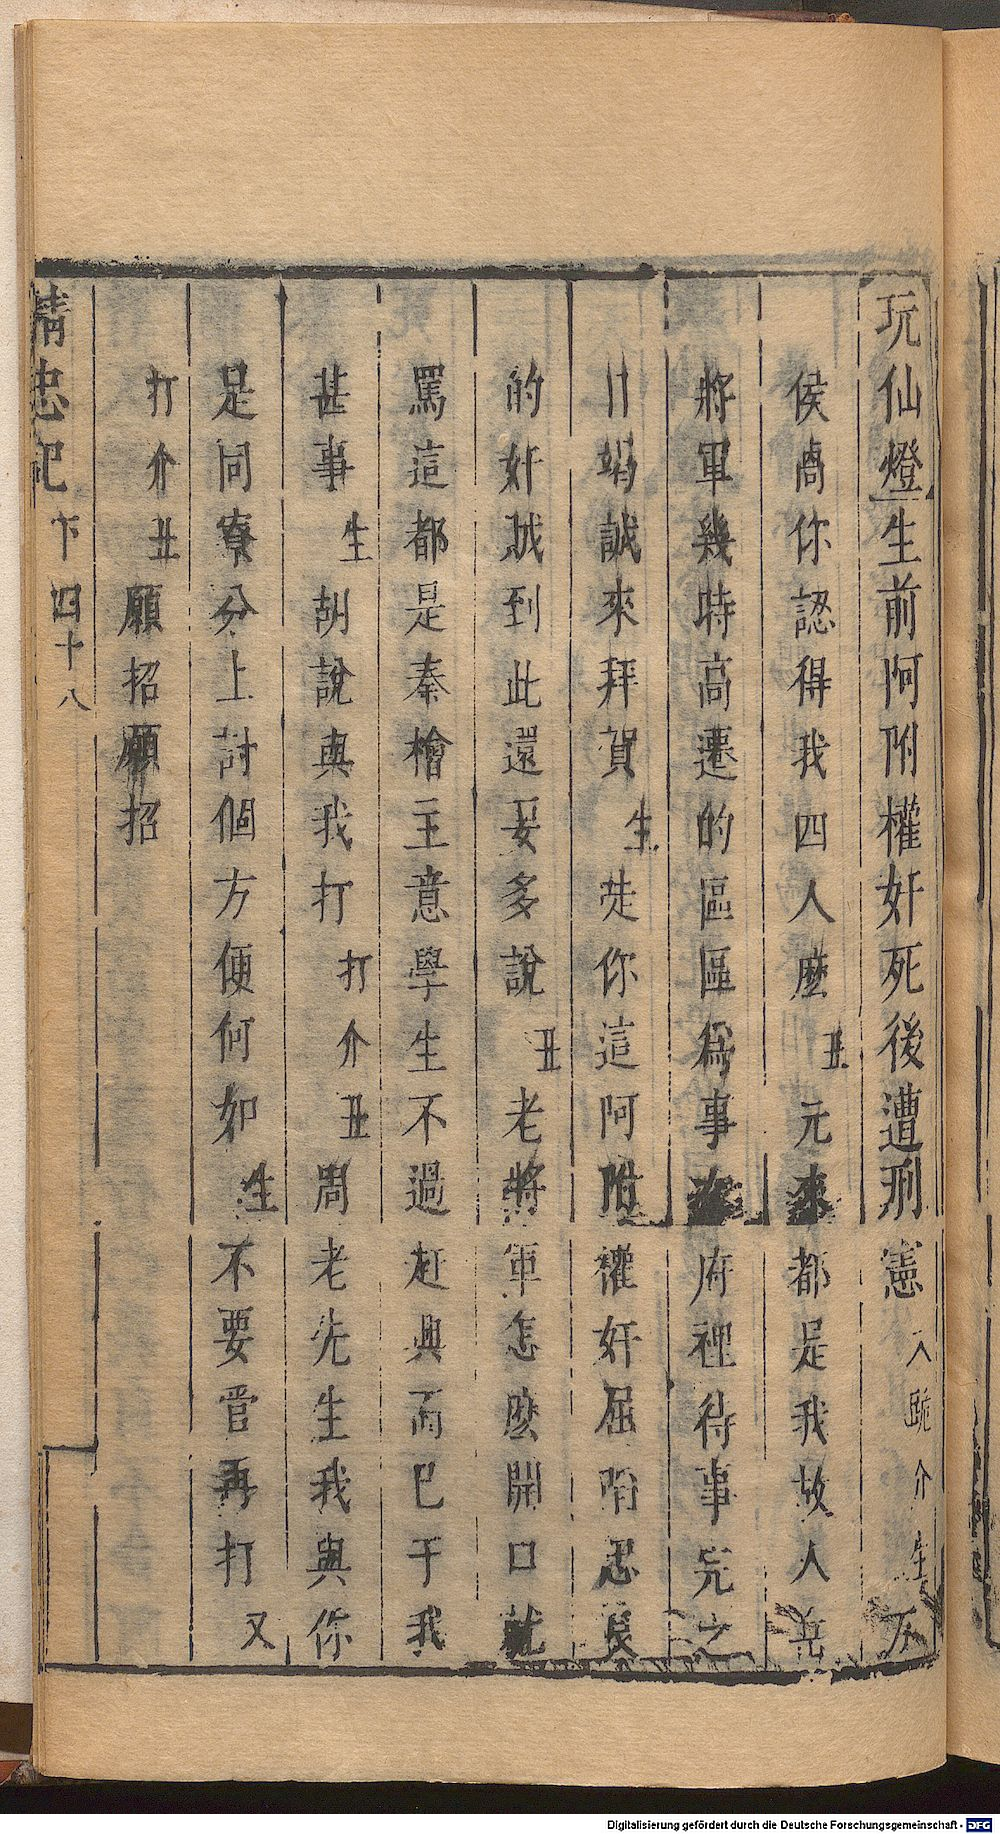 玩仙燈生前阿附權奸死後遭刑憲入跪介生万
侯卨你認得我四人麼丑元來都是我故人岳
將軍幾時高遷的區區為事在府裡待事完之
日竭誠來拜賀生走你這阿附權奸屈陷忠良
的奸賊到此還要多說丑老將軍怎麽開口就
罵這都是秦檜主意學生不過赶興而已于我
甚事生胡說與我打打介丑周老先生我與你
是同寮分上討個方便何如生不要當再打又
打介丑願招願招
精忠記卞四十八
Digitalisierung gefördert durch die Deutsche Forschungsgemeinschaft - DFG